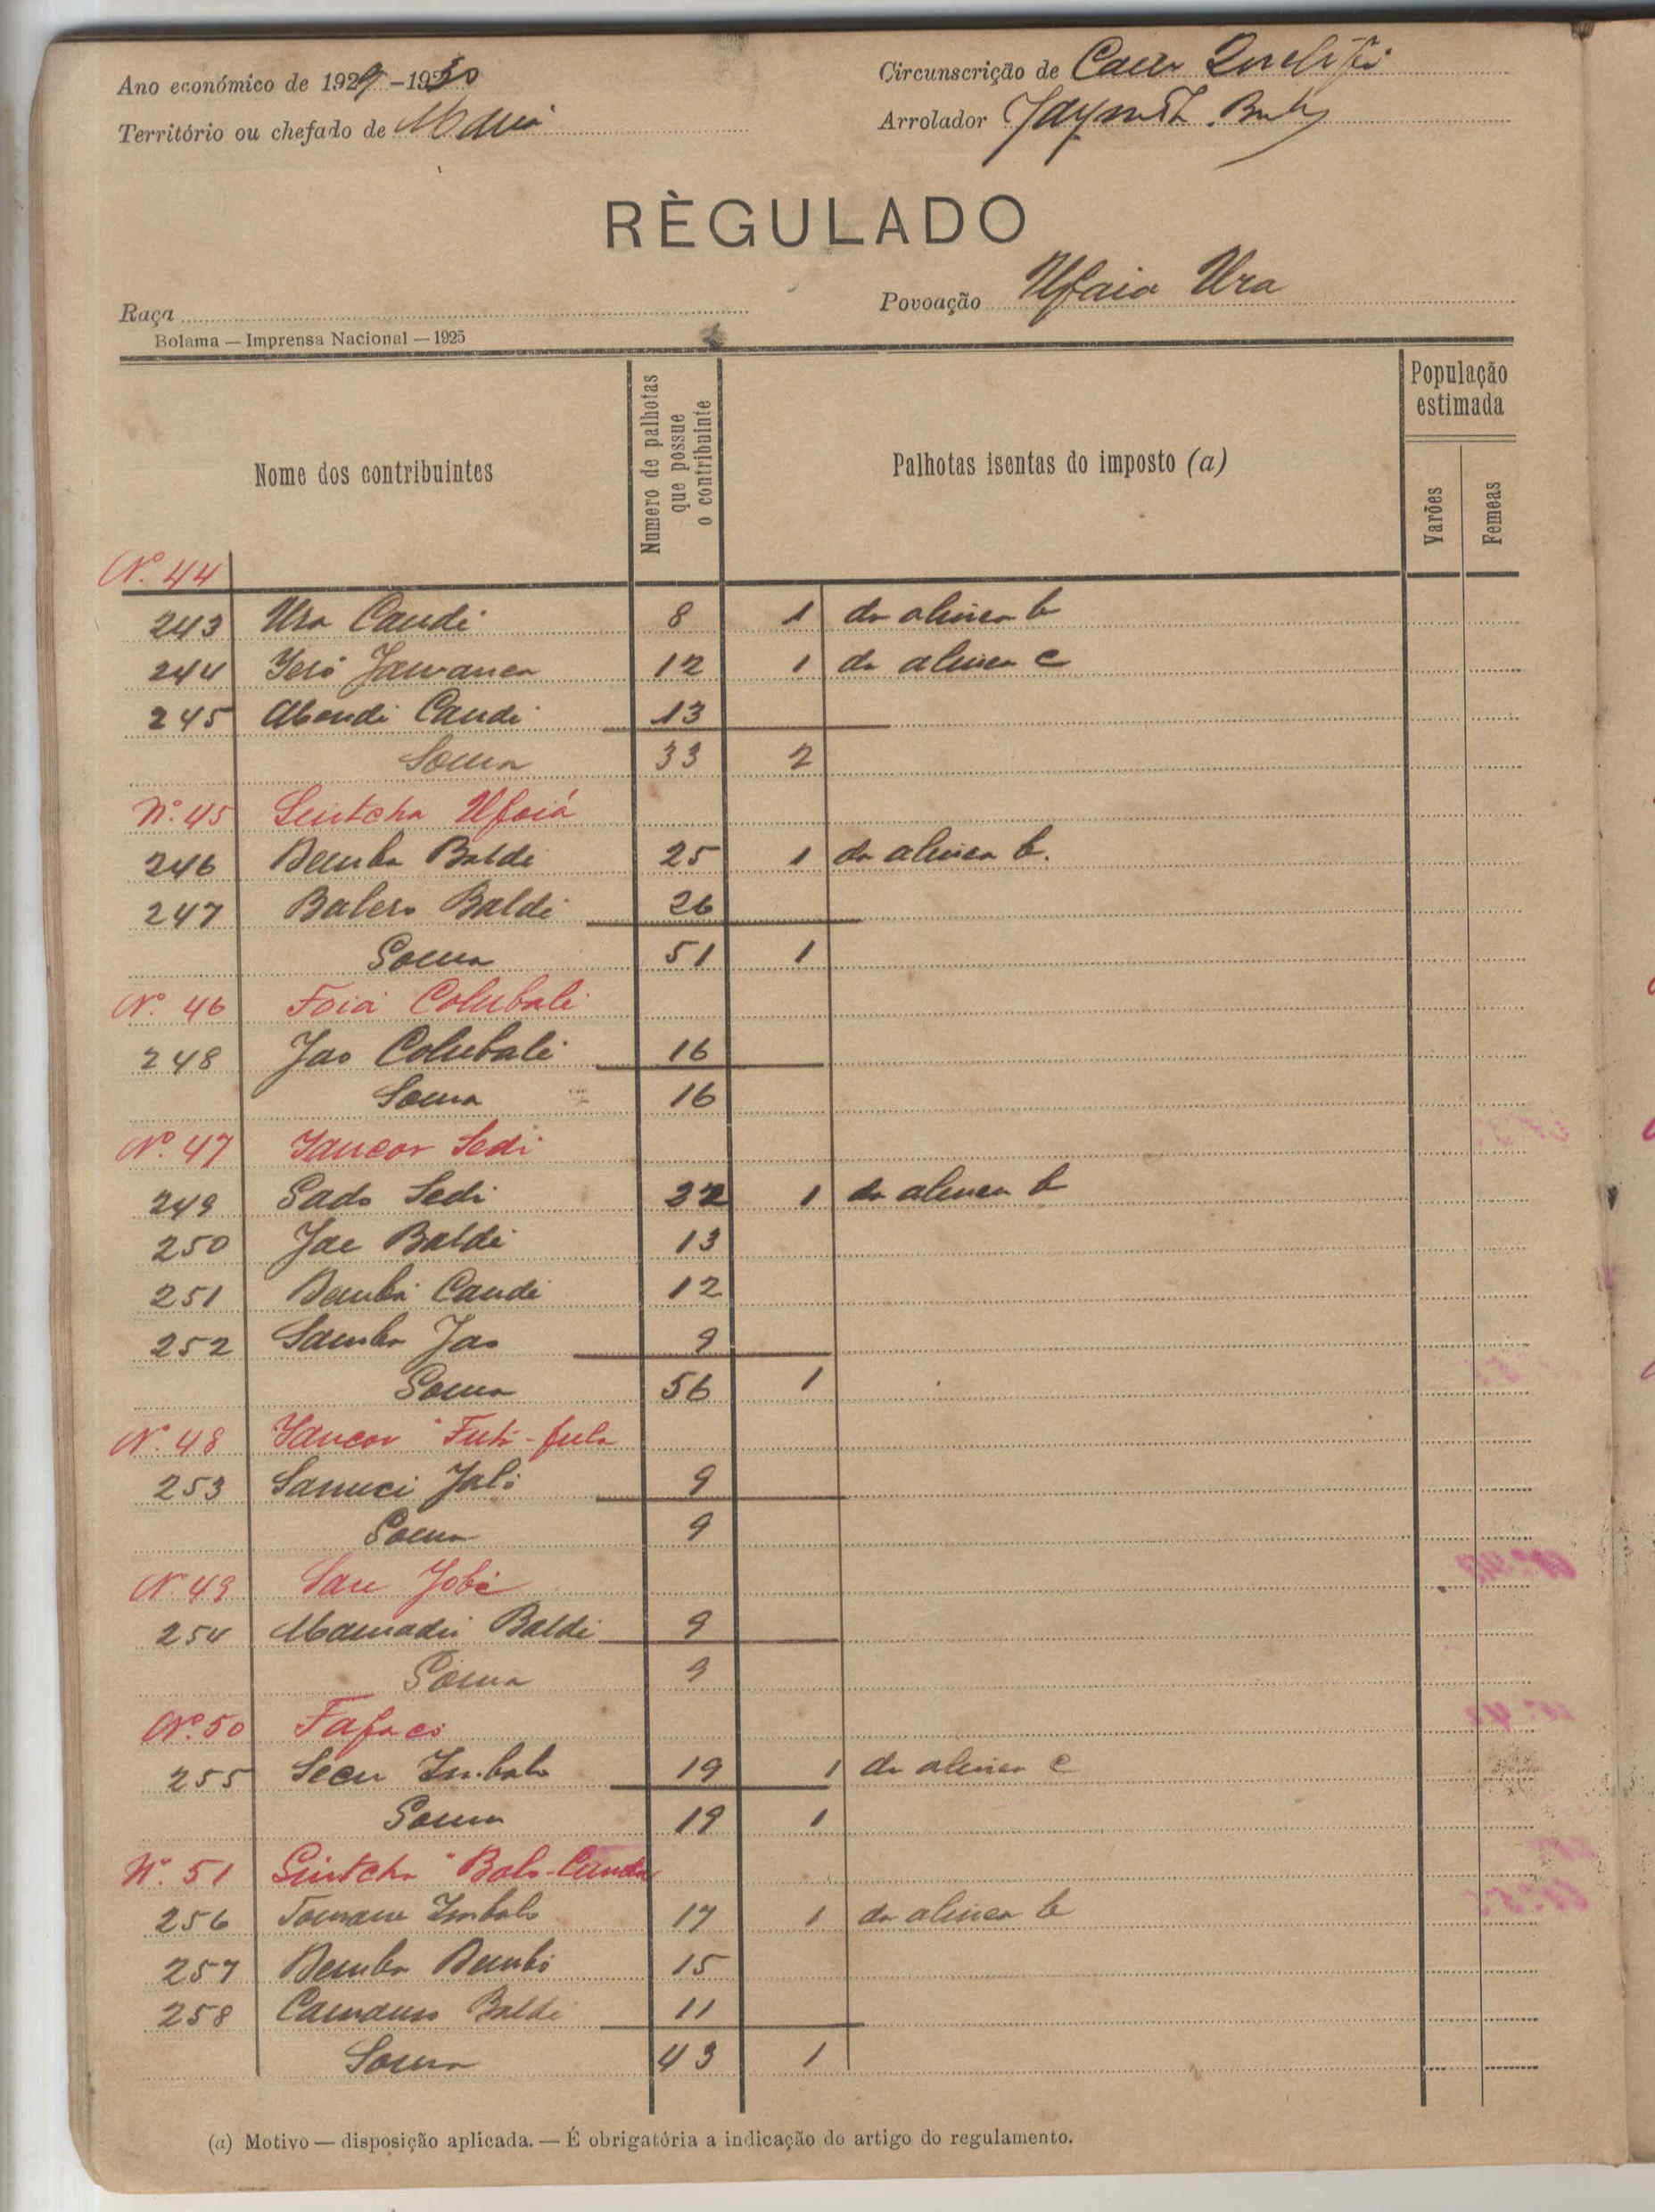 Ano económico de 1929-1930
Circunscrição de
Território ou chefado de
Arrolador
RÈGULADO
Raça
Povoação Ufaia Ura
Bolama — Imprensa Nacional — 1925
Nome dos contribuintes
Numero de palhotas que possue o contribuinte
Palhotas isentas do imposto (a)
População estimada
Varões
Femeas
Nº 44
243 Ura Candi 8 1 da alinea b
244 12 1 da alinea c
245 Candi 13
Soma 33 2
Nº 45 Sintcha Ufaiá
246 Demba Baldi 25 1 da alinea b.
247 Balero Baldi 26
Soma 51 1
Nº 46 Foiá Colubali
248 Jao Colubali 16
Soma 16
Nº 47 Sedi
249 Sado Sedi 22 1 da alinea b
250 Jae Baldi 13
251 Demba Candi 12
252 Samba Jao 9
Soma 56 1
Nº 48 Futa-fula
253 Jaló 9
Soma 9
Nº 49 Sare Jobé
254 Mamadú Baldi 9
Soma 9
Nº 50 Fafaco
255 Secu Imbalo 19 1 da alinea c
Soma 19 1
Nº 51 Sintcha
256 Imbalo 17 1 da alinea b
257 Demba 15
258 Baldi 11
Soma 43 1
(a) Motivo — disposição aplicada. — É obrigatória a indicação do artigo do regulamento.